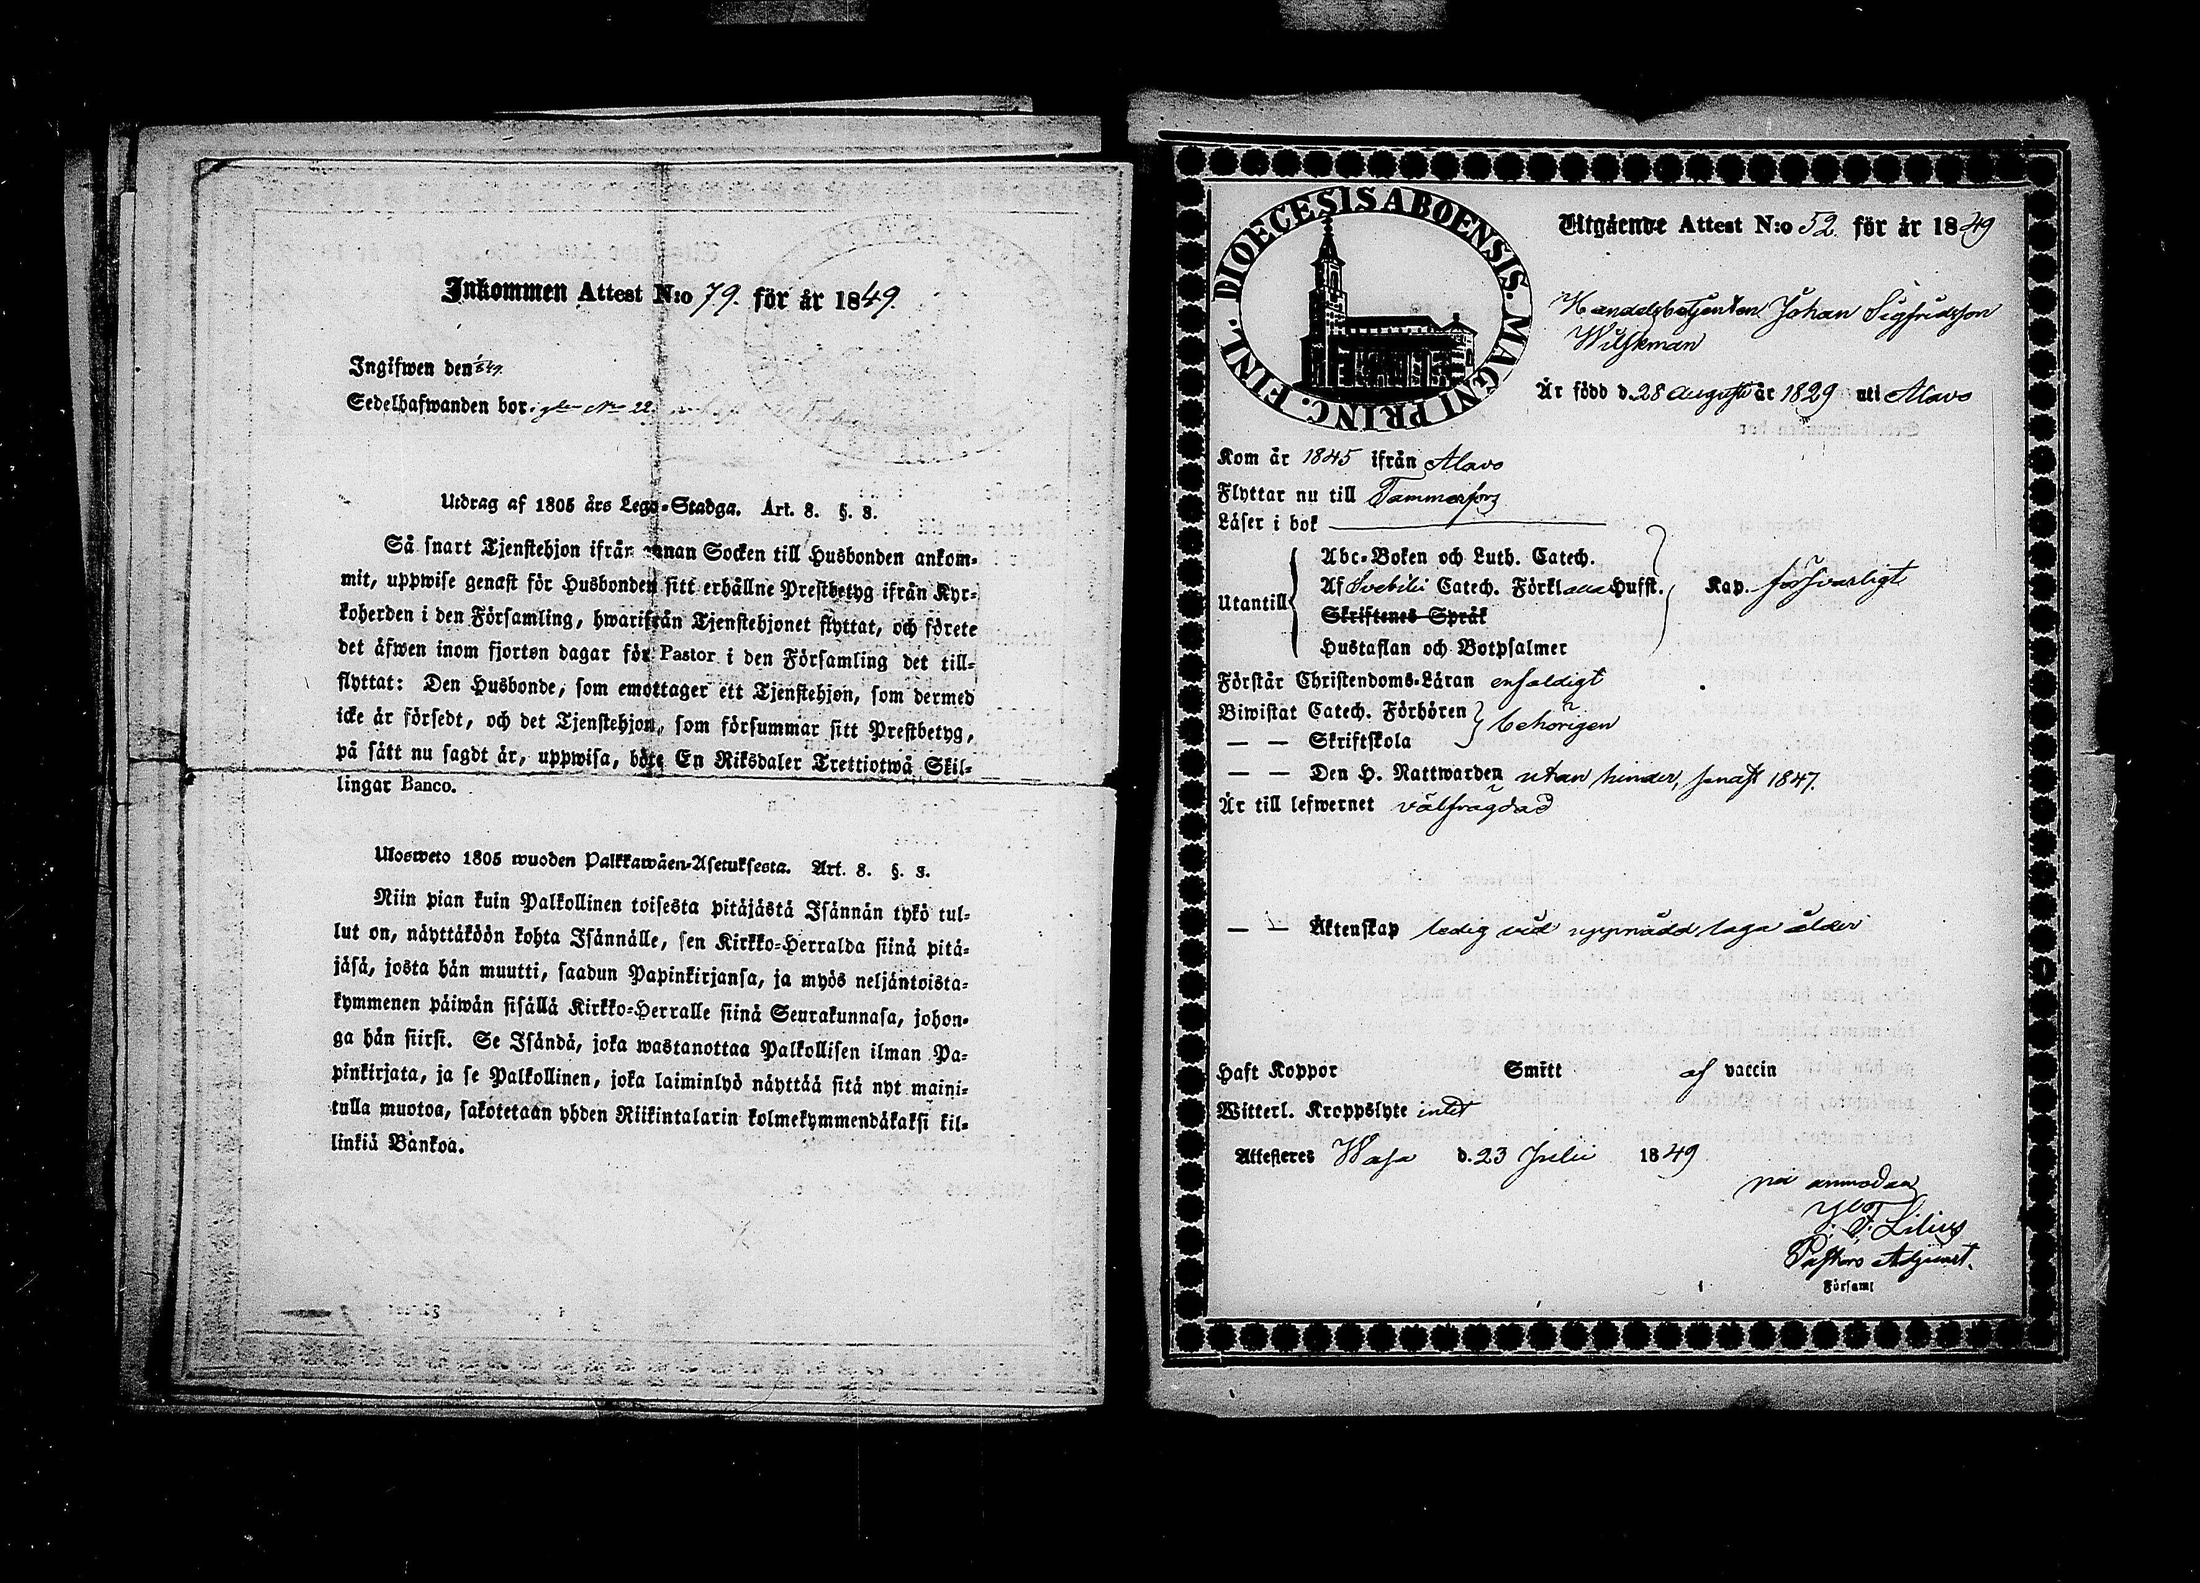 Inkommen Attest N:o 79. för år 1849.
Ingifwen den
Sedelhafwanden bor. N:o 22
Utdrag af 1805 års Lego-Stadga. Art. 8. §. 3.
Så snart Tjenstehjon ifrån annan Socken till Husbonden ankom-
mit, uppwise genast för Husbonden sitt erhållne Prestbetyg ifrån Kyr-
koherden i den Församling, hwarifrån Tjenstehjonet flyttat, och förete
det äfwen inom fjorton dagar för Pastor i den Församling det till-
flyttat: Den Husbonde, som emottager ett Tjenstehjon, som dermed
icke är försedt, och det Tjenstehjon, som försummar sitt Prestbetyg,
på sätt nu sagdt är, uppwisa, böte En Riksdaler Trettiotwå Skil-
lingar Banco.
Ulosweto 1805 wuoden Palkkawäen-Asetuksesta. Art. 8. §. 3.
Niin pian kuin Palkollinen toisesta pitäjästä Isännän tykö tul-
lut on, näyttäköön kohta Isännälle, sen Kirkko-Herralda siinä pitä-
jäsä, josta hän muutti, saadun Papinkirjansa, ja myös neljäntoista-
kymmenen päiwän sisällä Kirkko-Herralle siinä Seurakunnasa, johon-
ga hän siirsi. Se Isändä, joka wastanottaa Palkollisen ilman Pa-
pinkirjata, ja se Palkollinen, joka laiminlyö näyttää sitä nyt maini-
tulla muotoa, sakotetaan yhden Riikintalarin kolmekymmendäkaksi kil-
linkiä Bankoa.
DIOECESIS ABOENSIS. MAGNI PRINC. FINL.
Utgående Attest N:o 52. för år 1849
Handelsbetjenten Johan Sigfridsson
Wilskman
Är född d. 28 Augusti år 1829 uti Alavo
Kom år 1845 ifrån Alavo
Flyttar nu till Tammerfors
Läser i bok
Utantill
Abc-Boken och Luth. Catech.
Af Svebilii Catech. Förkl. Hufst. Kap. försvarligt
Skriftenes Språk
Hustaflan och Botpsalmer
Förstår Christendoms-Läran enfaldigt
Biwistat Catech. Förhören
— — Skriftskola behörigen
— — Den H. Nattwarden utan hinder, senast 1847.
Är till lefwernet välfrägdad
— — Äktenskap ledig vid uppnådd laga ålder
Haft Koppor Smitt af vaccin
Witterl. Kroppslyte intet
Attesteras Wasa d. 23 Julii 1849
på anmodan
F. Lilius
Pastors Adjunct.
Församl